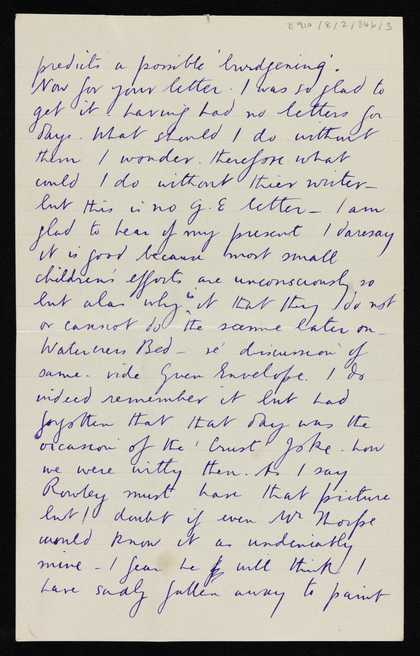 predicts a possible 'burdgening'.
Now for your letter. I was so glad to
get it having had no letters for
days. What should I do without
them I wonder. therefore what
could I do without thier writer –
but this is no G.E letter – I am
glad to hear of my present I daresay
it is good because most small
children's efforts are unconsciously so
but alas why is it that they do not
or cannot do the same later on –
Watercress Bed – re' discussion of
same. vide Green Envelope. I do
indeed remember it but had
forgotten that that day was the
occasion of the 'Crust' Joke. how
we were witty then. As I say
Rowley must have that picture
but I doubt if even Mr Thorpe
would know it as undeniably
mine – I fear he will think I
have sadly fallen away to paint